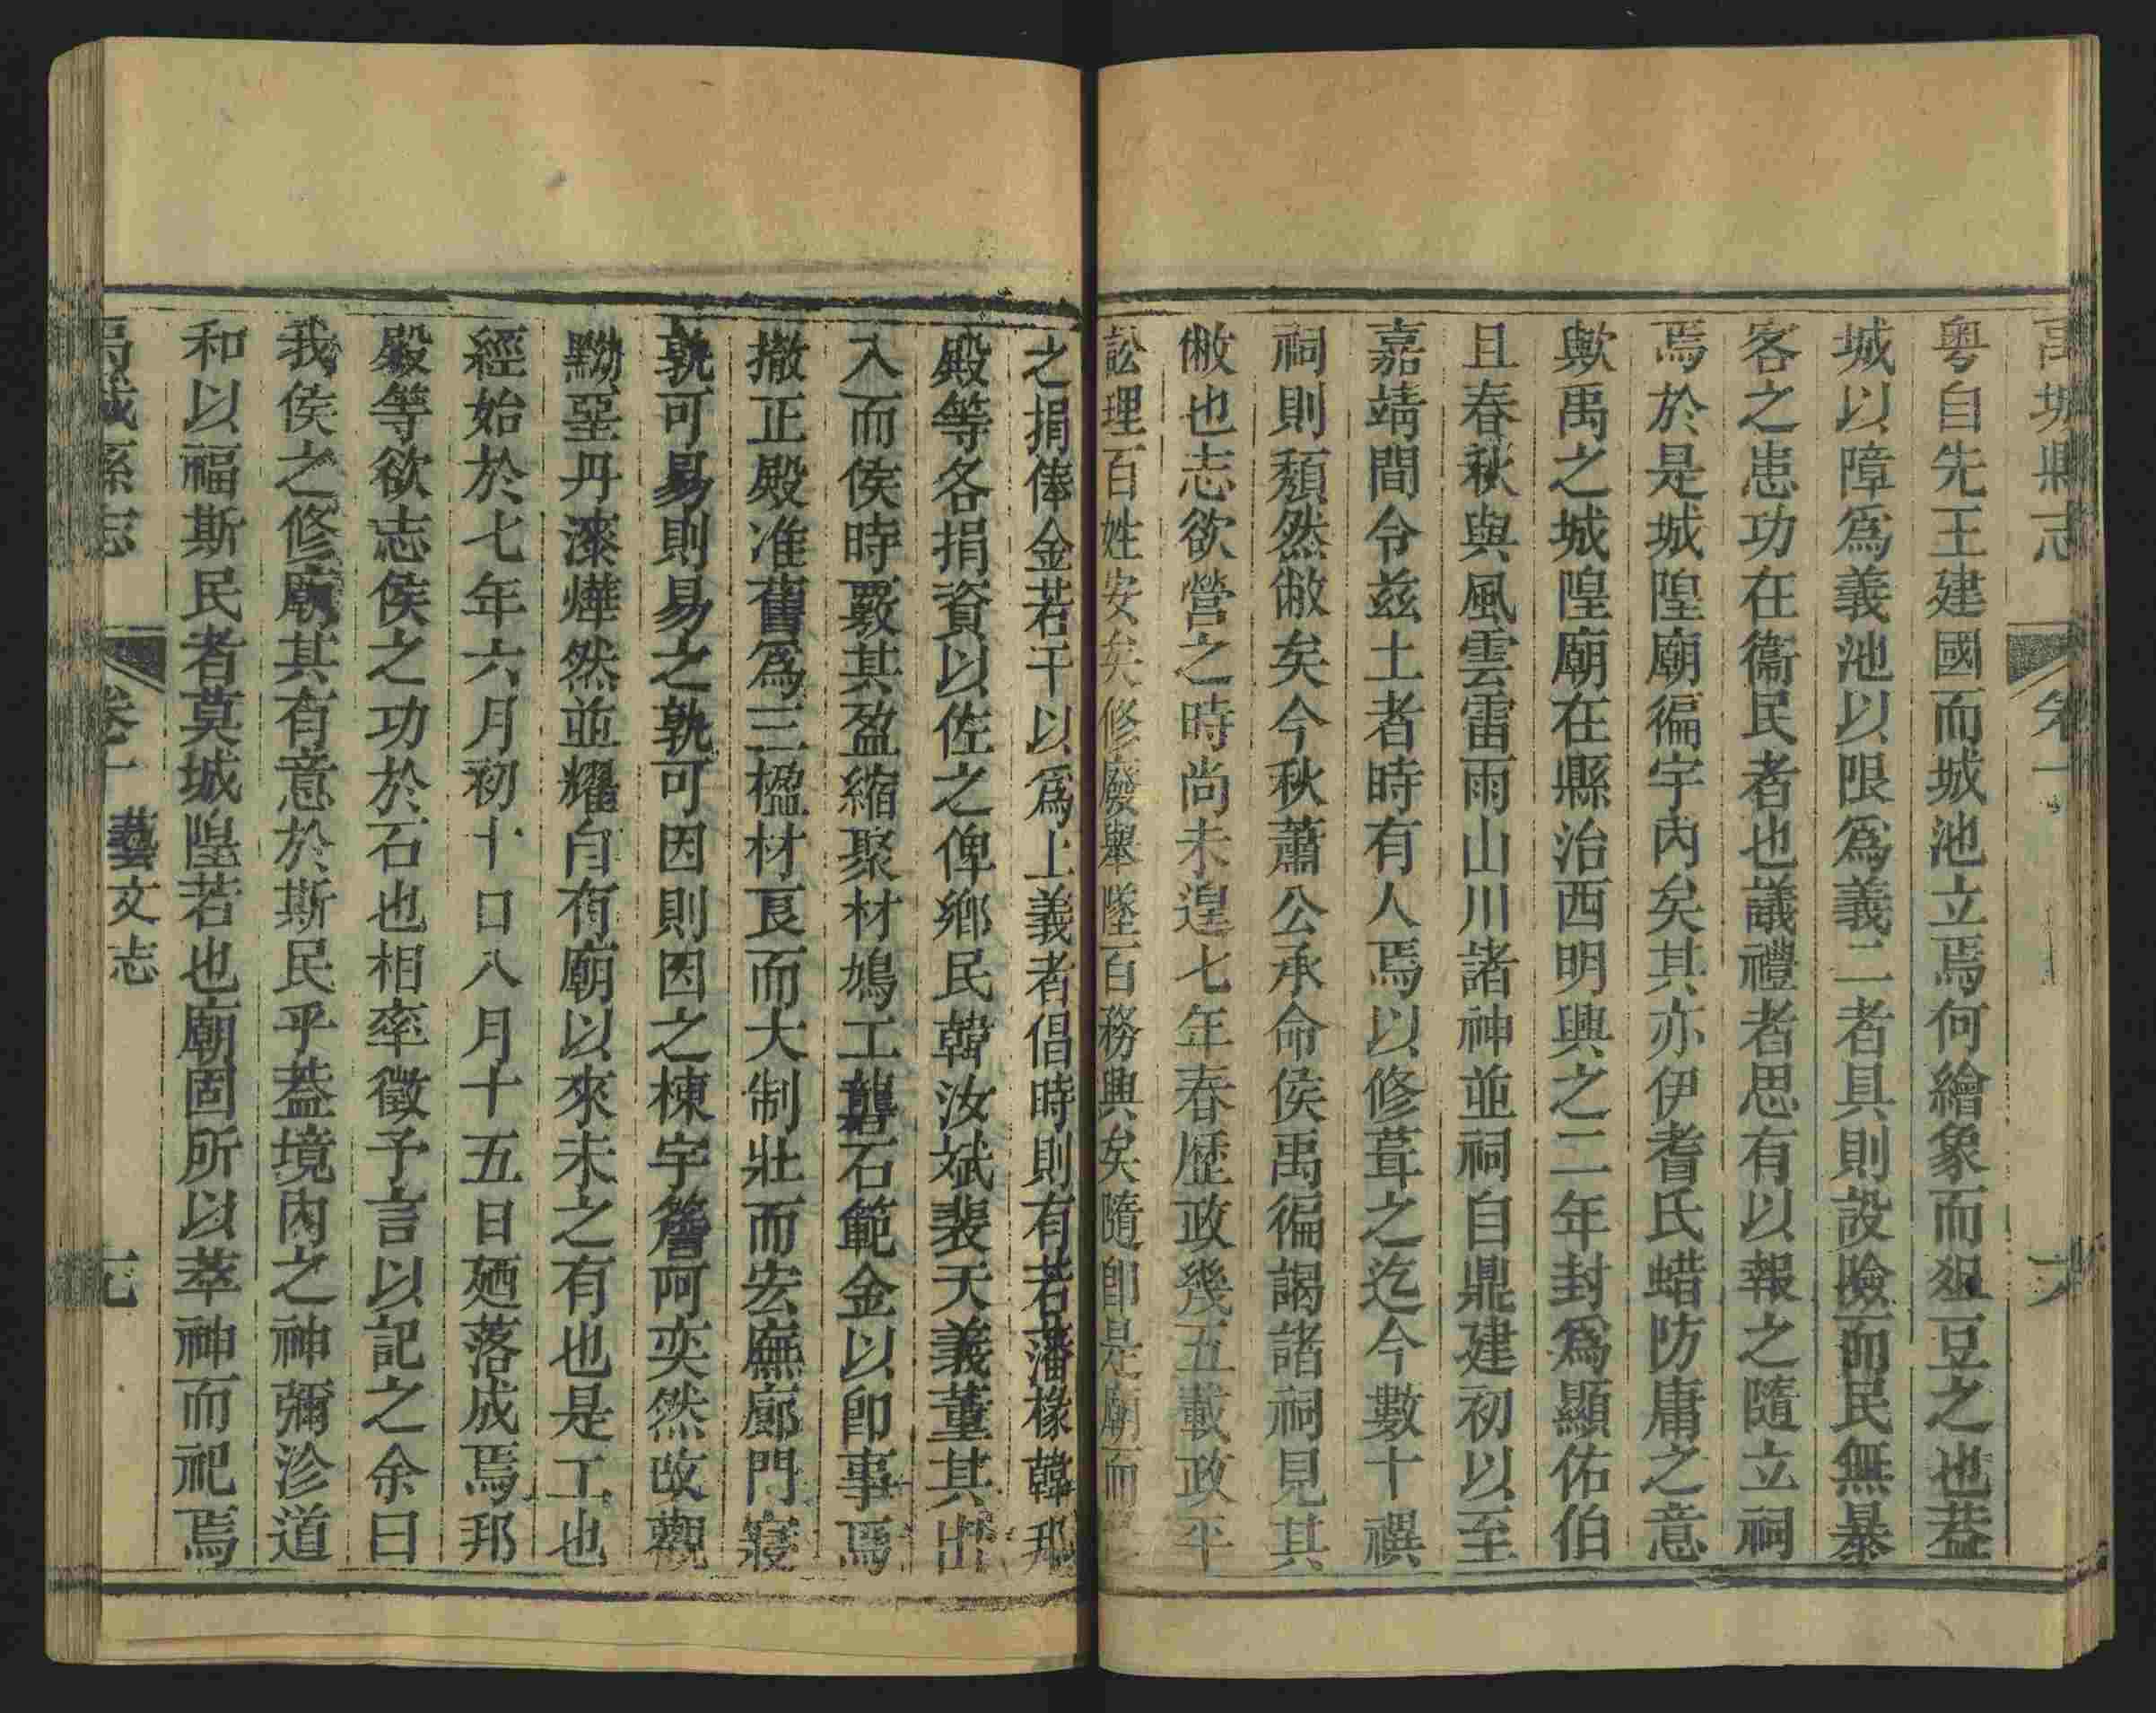 粤自先王建國而城池立焉何繪象而俎豆之也葢
城以障爲義池以限爲義二者具則設險而民無暴
客之患功在衞民者也議禮者思有以報之隨立祠
焉於是城隍廟徧宇內矣其亦伊耆氏蜡防庸之意
歟禹之城隍廟在縣治西明興之二年封爲顯佑伯
且春秋與風雲雷雨山川諸神並祠自鼎建初以至
嘉靖間令兹土者時有人焉以修葺之迄今數十禩
祠則頽然敝矣今秋蕭公承命侯禹徧謁諸祠見其
敝也志欲營之時尚未遑七年春歷政幾五載政平
訟理百姓安矣修廢舉墜百務興矣隨卽是廟而
之捐俸金若干以爲上義者倡時則有若藩椽韓邦
殿等各捐資以佐之俾鄉民韓汝斌裴天義董其出
入而侯時覈其盈縮聚材鳩工礱石範金以卽事焉
撤正殿准舊爲三楹材良而大制壯而宏廡廊門寢
孰可易則易之孰可因則因之棟宇簷阿奕然改觀
黝堊丹漆燁然並耀自有廟以來未之有也是工也
經始於七年六月初十日八月十五日廼落成焉邦
殿等欲志侯之功於石也相率徵予言以記之余曰
我侯之修廟其有意於斯民乎葢境內之神彌沴道
和以福斯民者莫城隍若也廟固所以萃神而祀焉
禹城縣志 卷十 藝文志